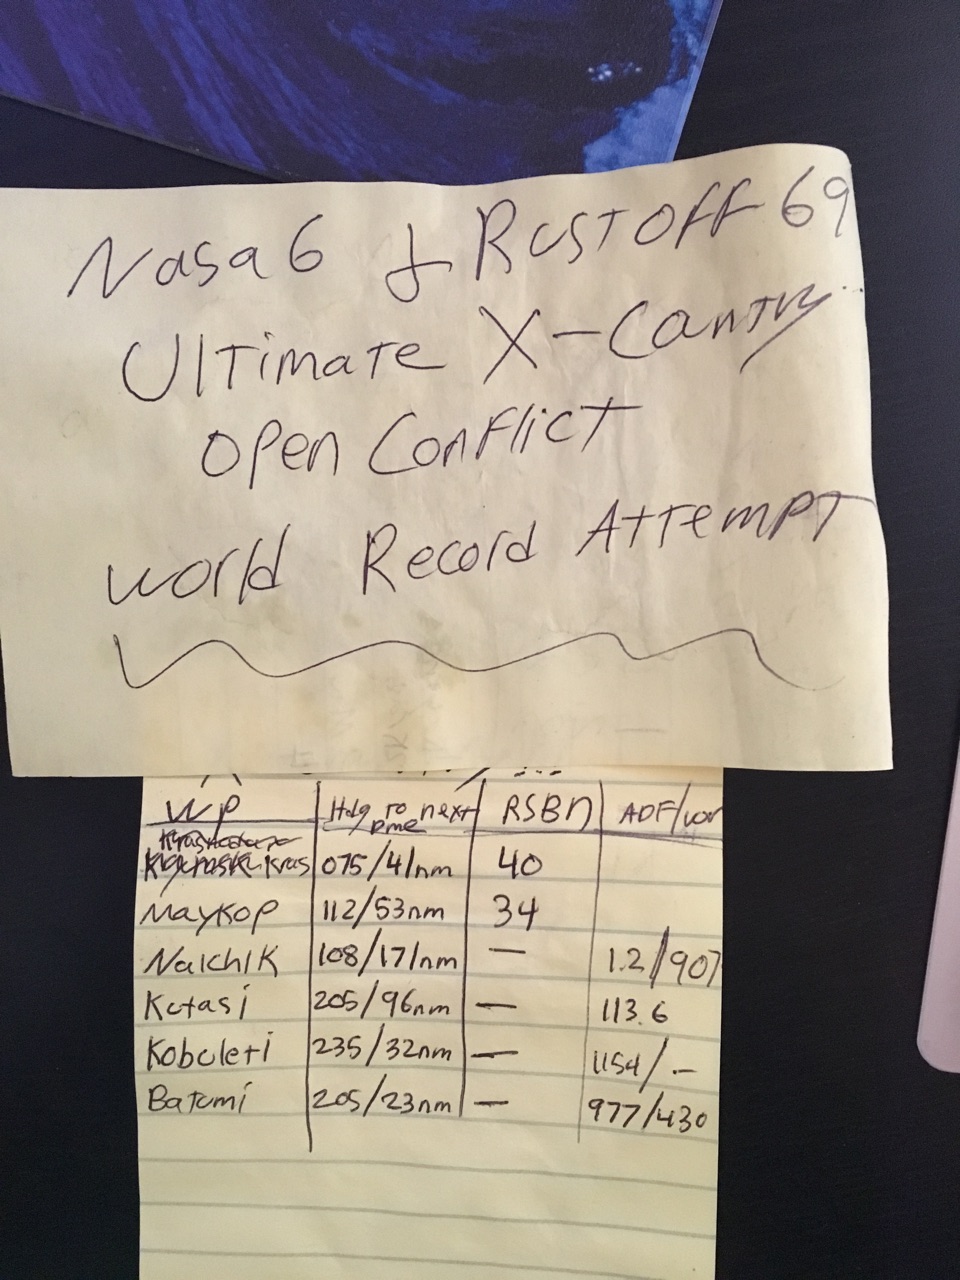 Nasa6 & Rustoff 69
Ultimate X-Cantry
Open Conflict
World Record Attempt
WP Hdg to next RSBN ADF/vor
Dme
Kras 075/41nm 40
Maykop 112/53nm 34
Nalchik 108/171nm — 1.2/907
Kutasi 205/96nm — 113.6
Kobuleti 235/32nm — 1154/.-
Batumi 205/23nm — 977/430